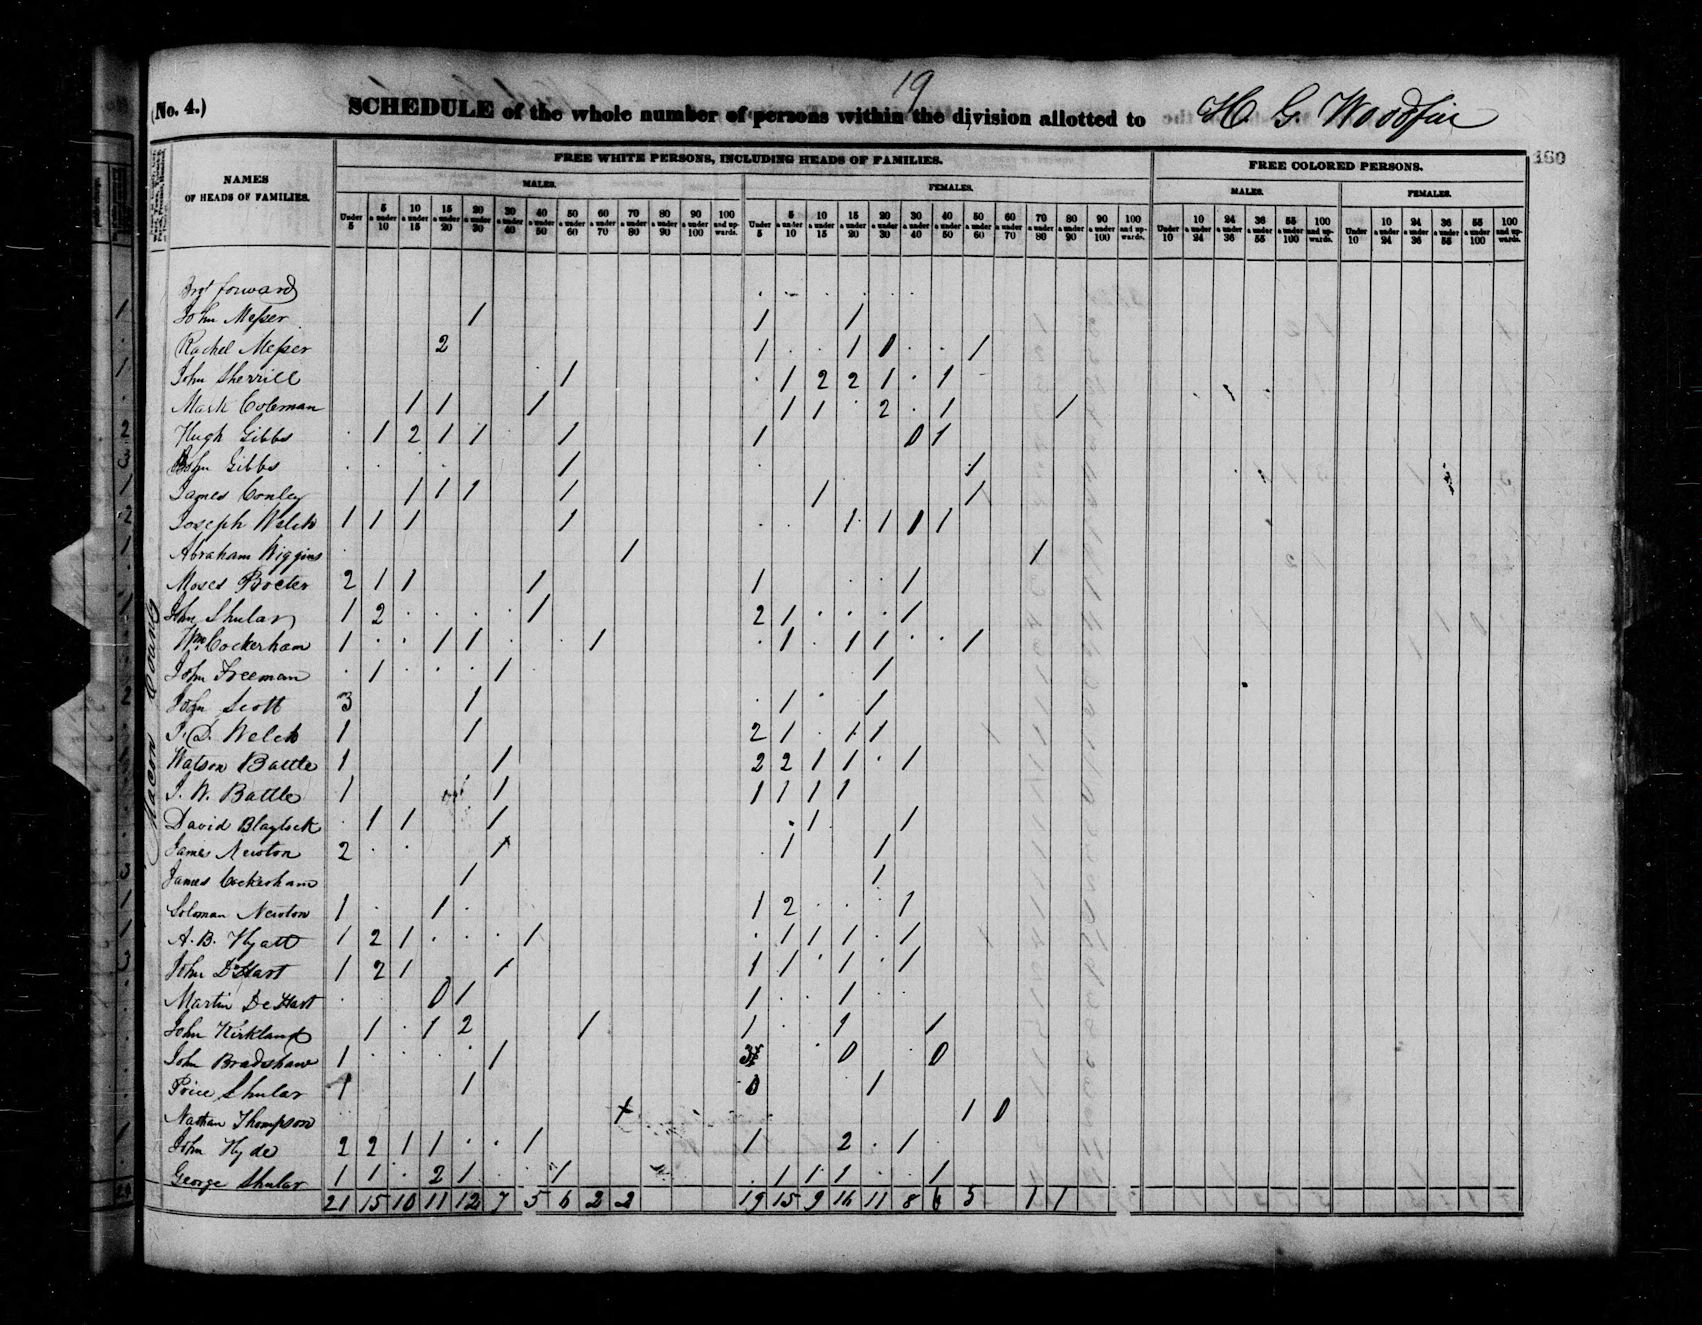 19
(No. 4.) SCHEDULE of the whole number of persons within the division allotted to H. G. Woodfin
160
NAMES OF HEADS OF FAMILIES.
FREE WHITE PERSONS, INCLUDING HEADS OF FAMILIES.
FREE COLORED PERSONS.
MALES. FEMALES. MALES. FEMALES.
Under 5 5 & under 10 10 & under 15 15 & under 20 20 & under 30 30 & under 40 40 & under 50 50 & under 60 60 & under 70 70 & under 80 80 & under 90 90 & under 100 100 and upwards.
Under 5 5 & under 10 10 & under 15 15 & under 20 20 & under 30 30 & under 40 40 & under 50 50 & under 60 60 & under 70 70 & under 80 80 & under 90 90 & under 100 100 and upwards.
Under 10 10 & under 24 24 & under 36 36 & under 55 55 & under 100 100 and upwards.
Under 10 10 & under 24 24 & under 36 36 & under 55 55 & under 100 100 and upwards.
Macon County
Brot forward
John Messer 1 1 1
Rachel Messer 2 1 1 0 1
John Sherrill 1 1 2 2 1 1
Mark Coleman 1 1 1 1 1 2 1 1
Hugh Gibbs 1 2 1 1 1 1 0 1
John Gibbs 1 1
James Conley 1 1 1 1 1 1
Joseph Welch 1 1 1 1 1 1 0 1
Abraham Wiggins 1 1
Moses 2 1 1 1 1 1
John Shular 1 2 1 2 1 1
Wm Cockerham 1 1 1 1 1 1 1 1
John Freeman 1 1 1
John Scott 3 1 1 1
J. D. Welch 1 1 2 1 1 1
Watson Battle 1 1 2 2 1 1 1
J. W. Battle 1 1 1 1 1 1
David Blaylock 1 1 1 1 1
James Newton 2 1 1 1
James Cockerham 1 1
Soloman Newton 1 1 1 2 1
A. B. Hyatt 1 2 1 1 1 1 1 1
John DeHart 1 2 1 1 1 1 1 1
Martin DeHart 0 1 1 1
John Kirkland 1 1 2 1 1 1 1
John Bradshaw 1 1 3 0 0
Price Shular 1 1 0 1
Nathan Thompson 1 0
John Hyde 2 2 1 1 1 1 2 1
George Shular 1 1 2 1 1 1 1 1 1
21 15 10 11 12 7 5 6 2 2 19 15 9 16 11 8 6 5 1 1